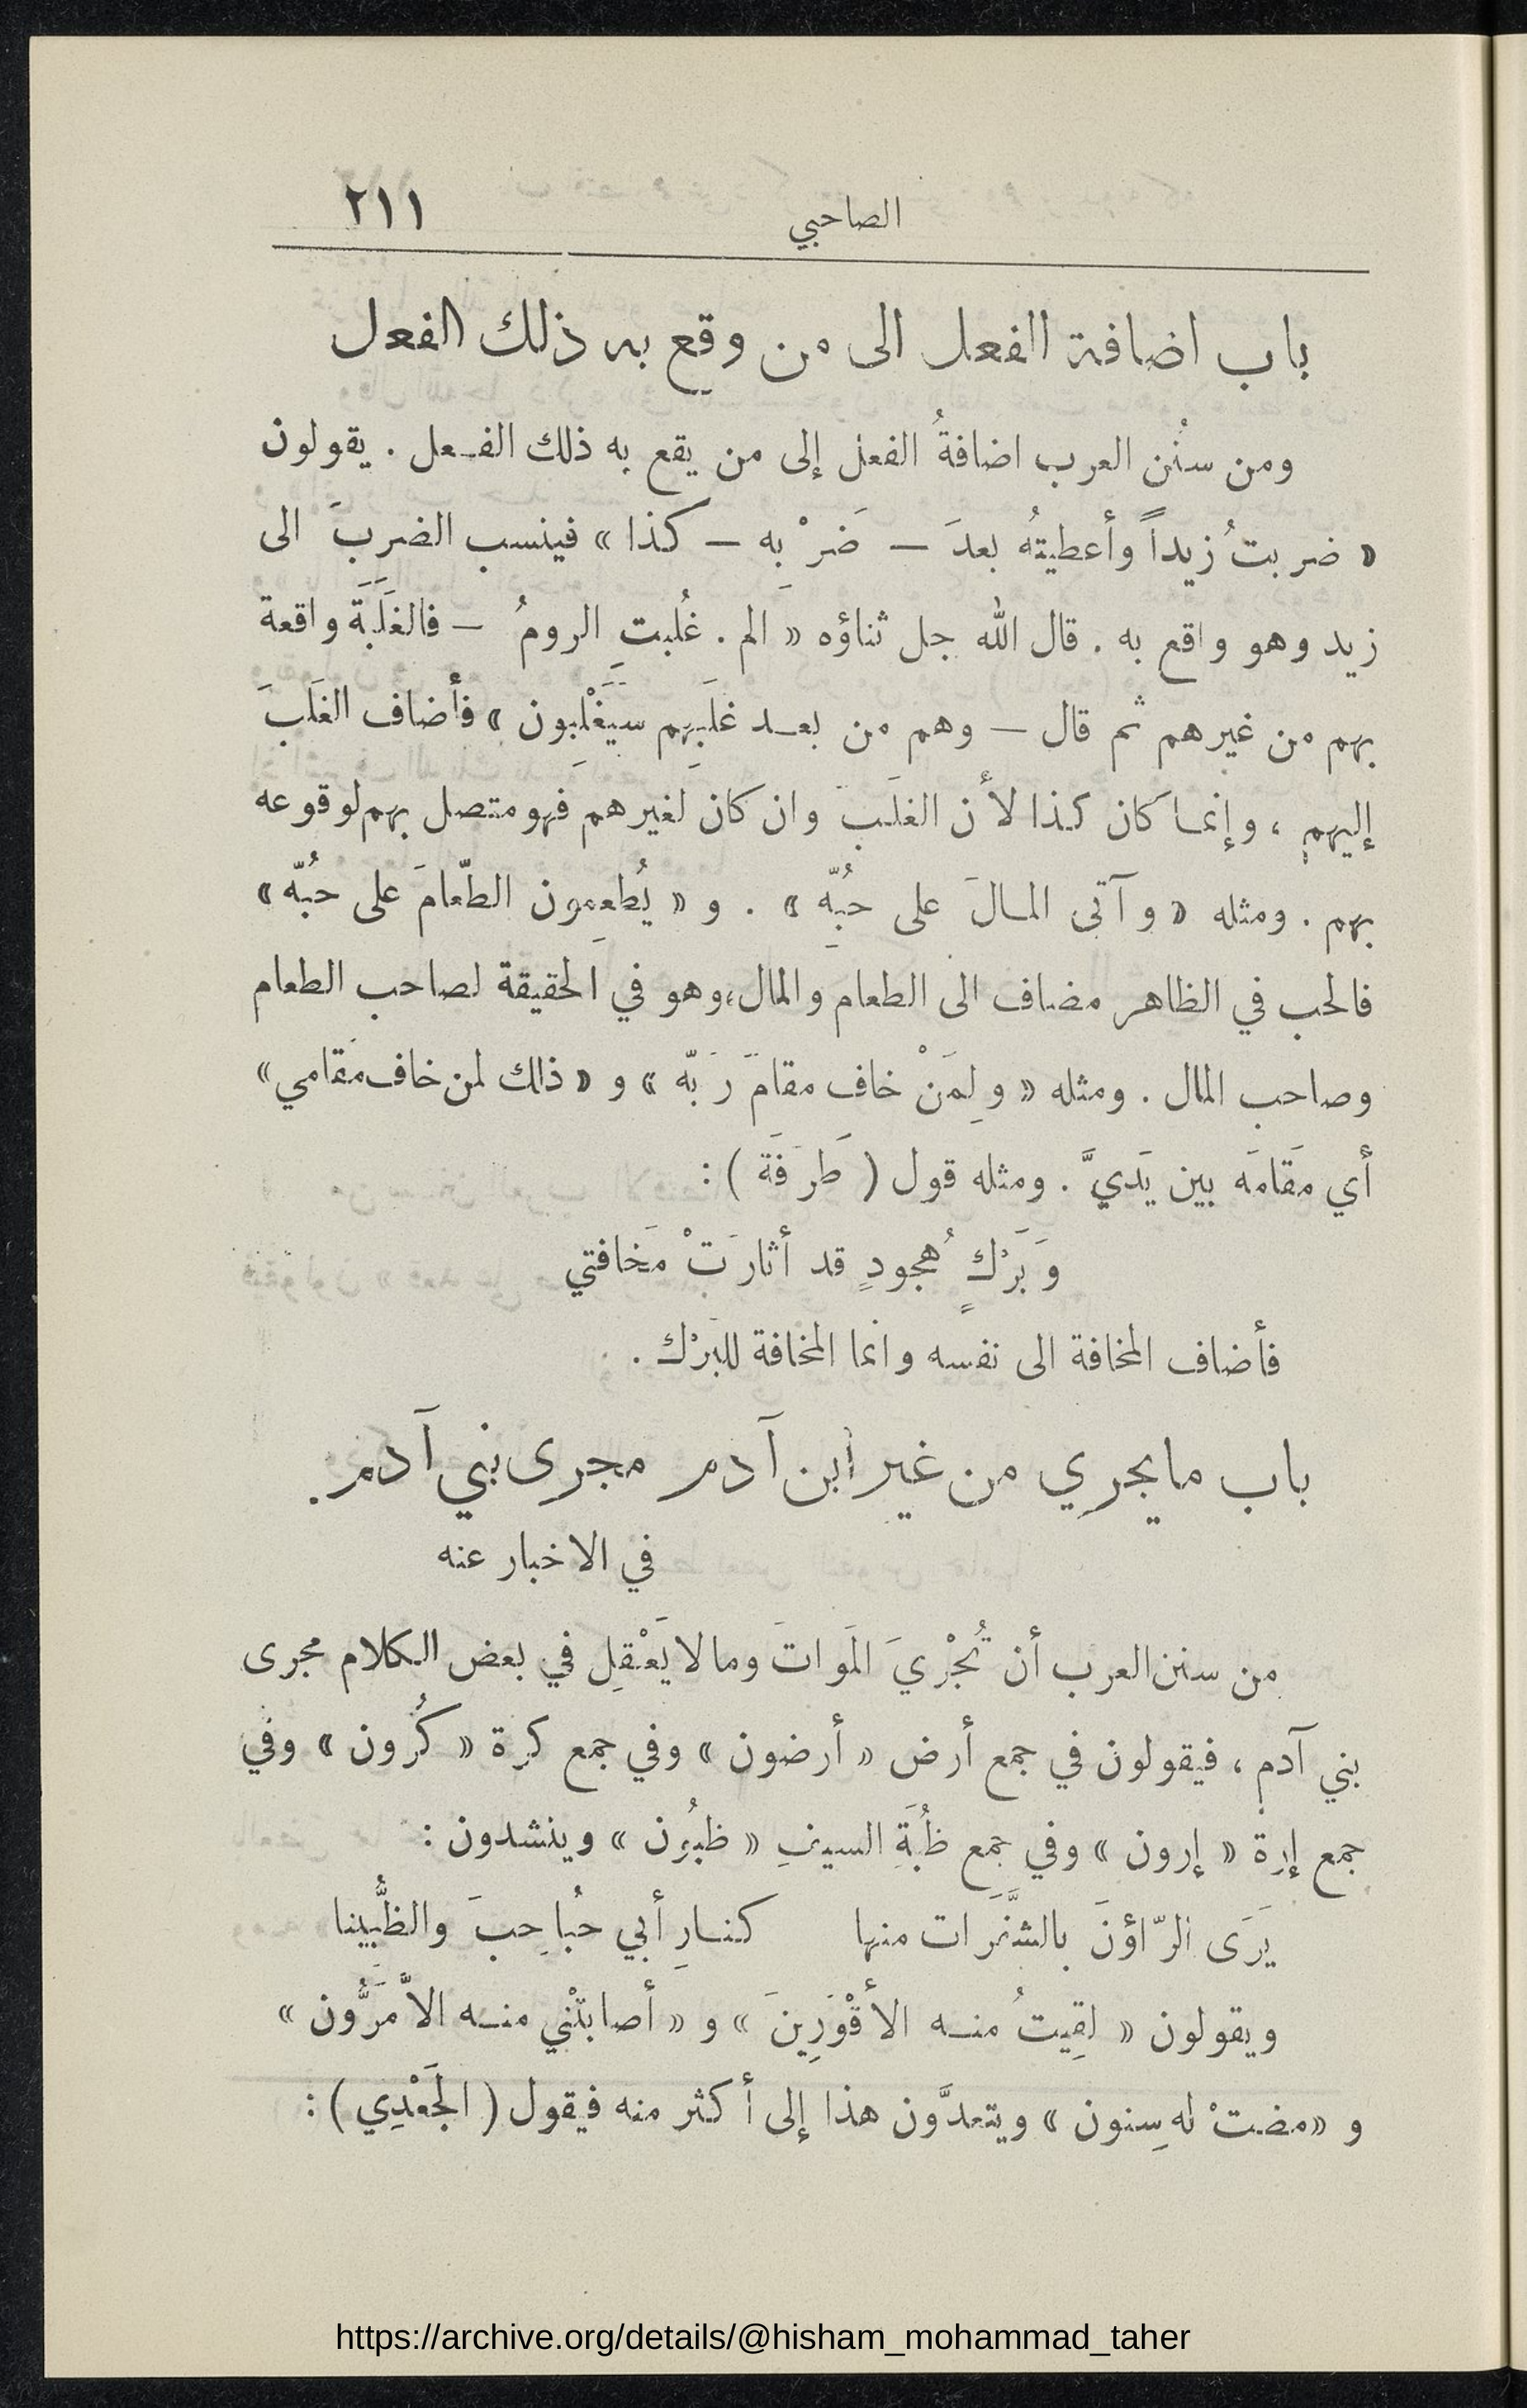 الصاحبي ٢١١
باب اضافة الفعل الى من وقع به ذلك الفعل
ومن سنُن العرب اضافةُ الفعل إلى من يقع به ذلك الفعل . يقولون
« ضربتُ زيداً وأعطيتهُ بعدَ — ضَرْبِه — كذا » فينسب الضربَ الى
زيد وهو واقع به . قال الله جل ثناؤه « الم . غُلبتِ الرومُ — فالغَلَبَةَ واقعة
بهم من غيرهم ثم قال — وهم من بعد غلَبِهِم سَيَغْلِبون » فأضاف الغَلَبَ
إليهم ، وإنما كان كذا لأن الغلَب وان كان لغيرهم فهو متصل بهم لوقوعه
بهم . ومثله « وآتى المالَ على حبُهِّ » . و « يُطعِمون الطّعامَ على حبُهّ »
فالحب في الظاهر مضاف الى الطعام والمال،وهو في الحقيقة لصاحب الطعام
وصاحب المال . ومثله « ولِمَنْ خاف مقامَ رَبّه » و « ذلك لمن خاف مَقامي »
أي مَقامَه بين يَديَّ . ومثله قول ( طَرَفَة ) :
وَبَرْكٍ هُجودٍ قد أثارَتْ مَخافتي
فأضاف المخافة الى نفسه وانما المخافة للبَرْك .
باب مايجري من غير ابن آدم مجرى بني آدم .
في الاخبار عنه
من سنن العرب أن تُجْرِيَ المَواتَ وما لا يَعْقِل في بعض الكلام مجرى
بني آدم ، فيقولون في جمع أرض « أرضون » وفي جمع كرة « كُرون » وفي
جمع إرة « إرون » وفي جمع ظُبَةِ السيفِ « ظبُون » وينشدون :
يَرَى الرّاؤنَ بالشَّفَرَات منها كنارِ أبي حُباحِبَ والظُّبينا
ويقولون « لقِيتُ منه الأقْوَرِينَ » و « أصابتْني منه الأَمَرُّون »
و «مضتْ له سِنون » ويتعدَّون هذا إلى أكثر منه فيقول ( الجَعْدِي ) :
https://archive.org/details/@hisham_mohammad_taher